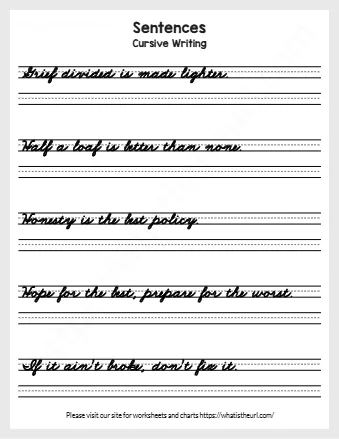 Sentences
Cursive Writing
Grief divided is made lighter.
Half a loaf is better than none.
Honesty is the best policy.
Hope for the best, prepare for the worst.
If it ain't broke, don't fix it.
Please visit our site for worksheets and charts https://whatistheurl.com/